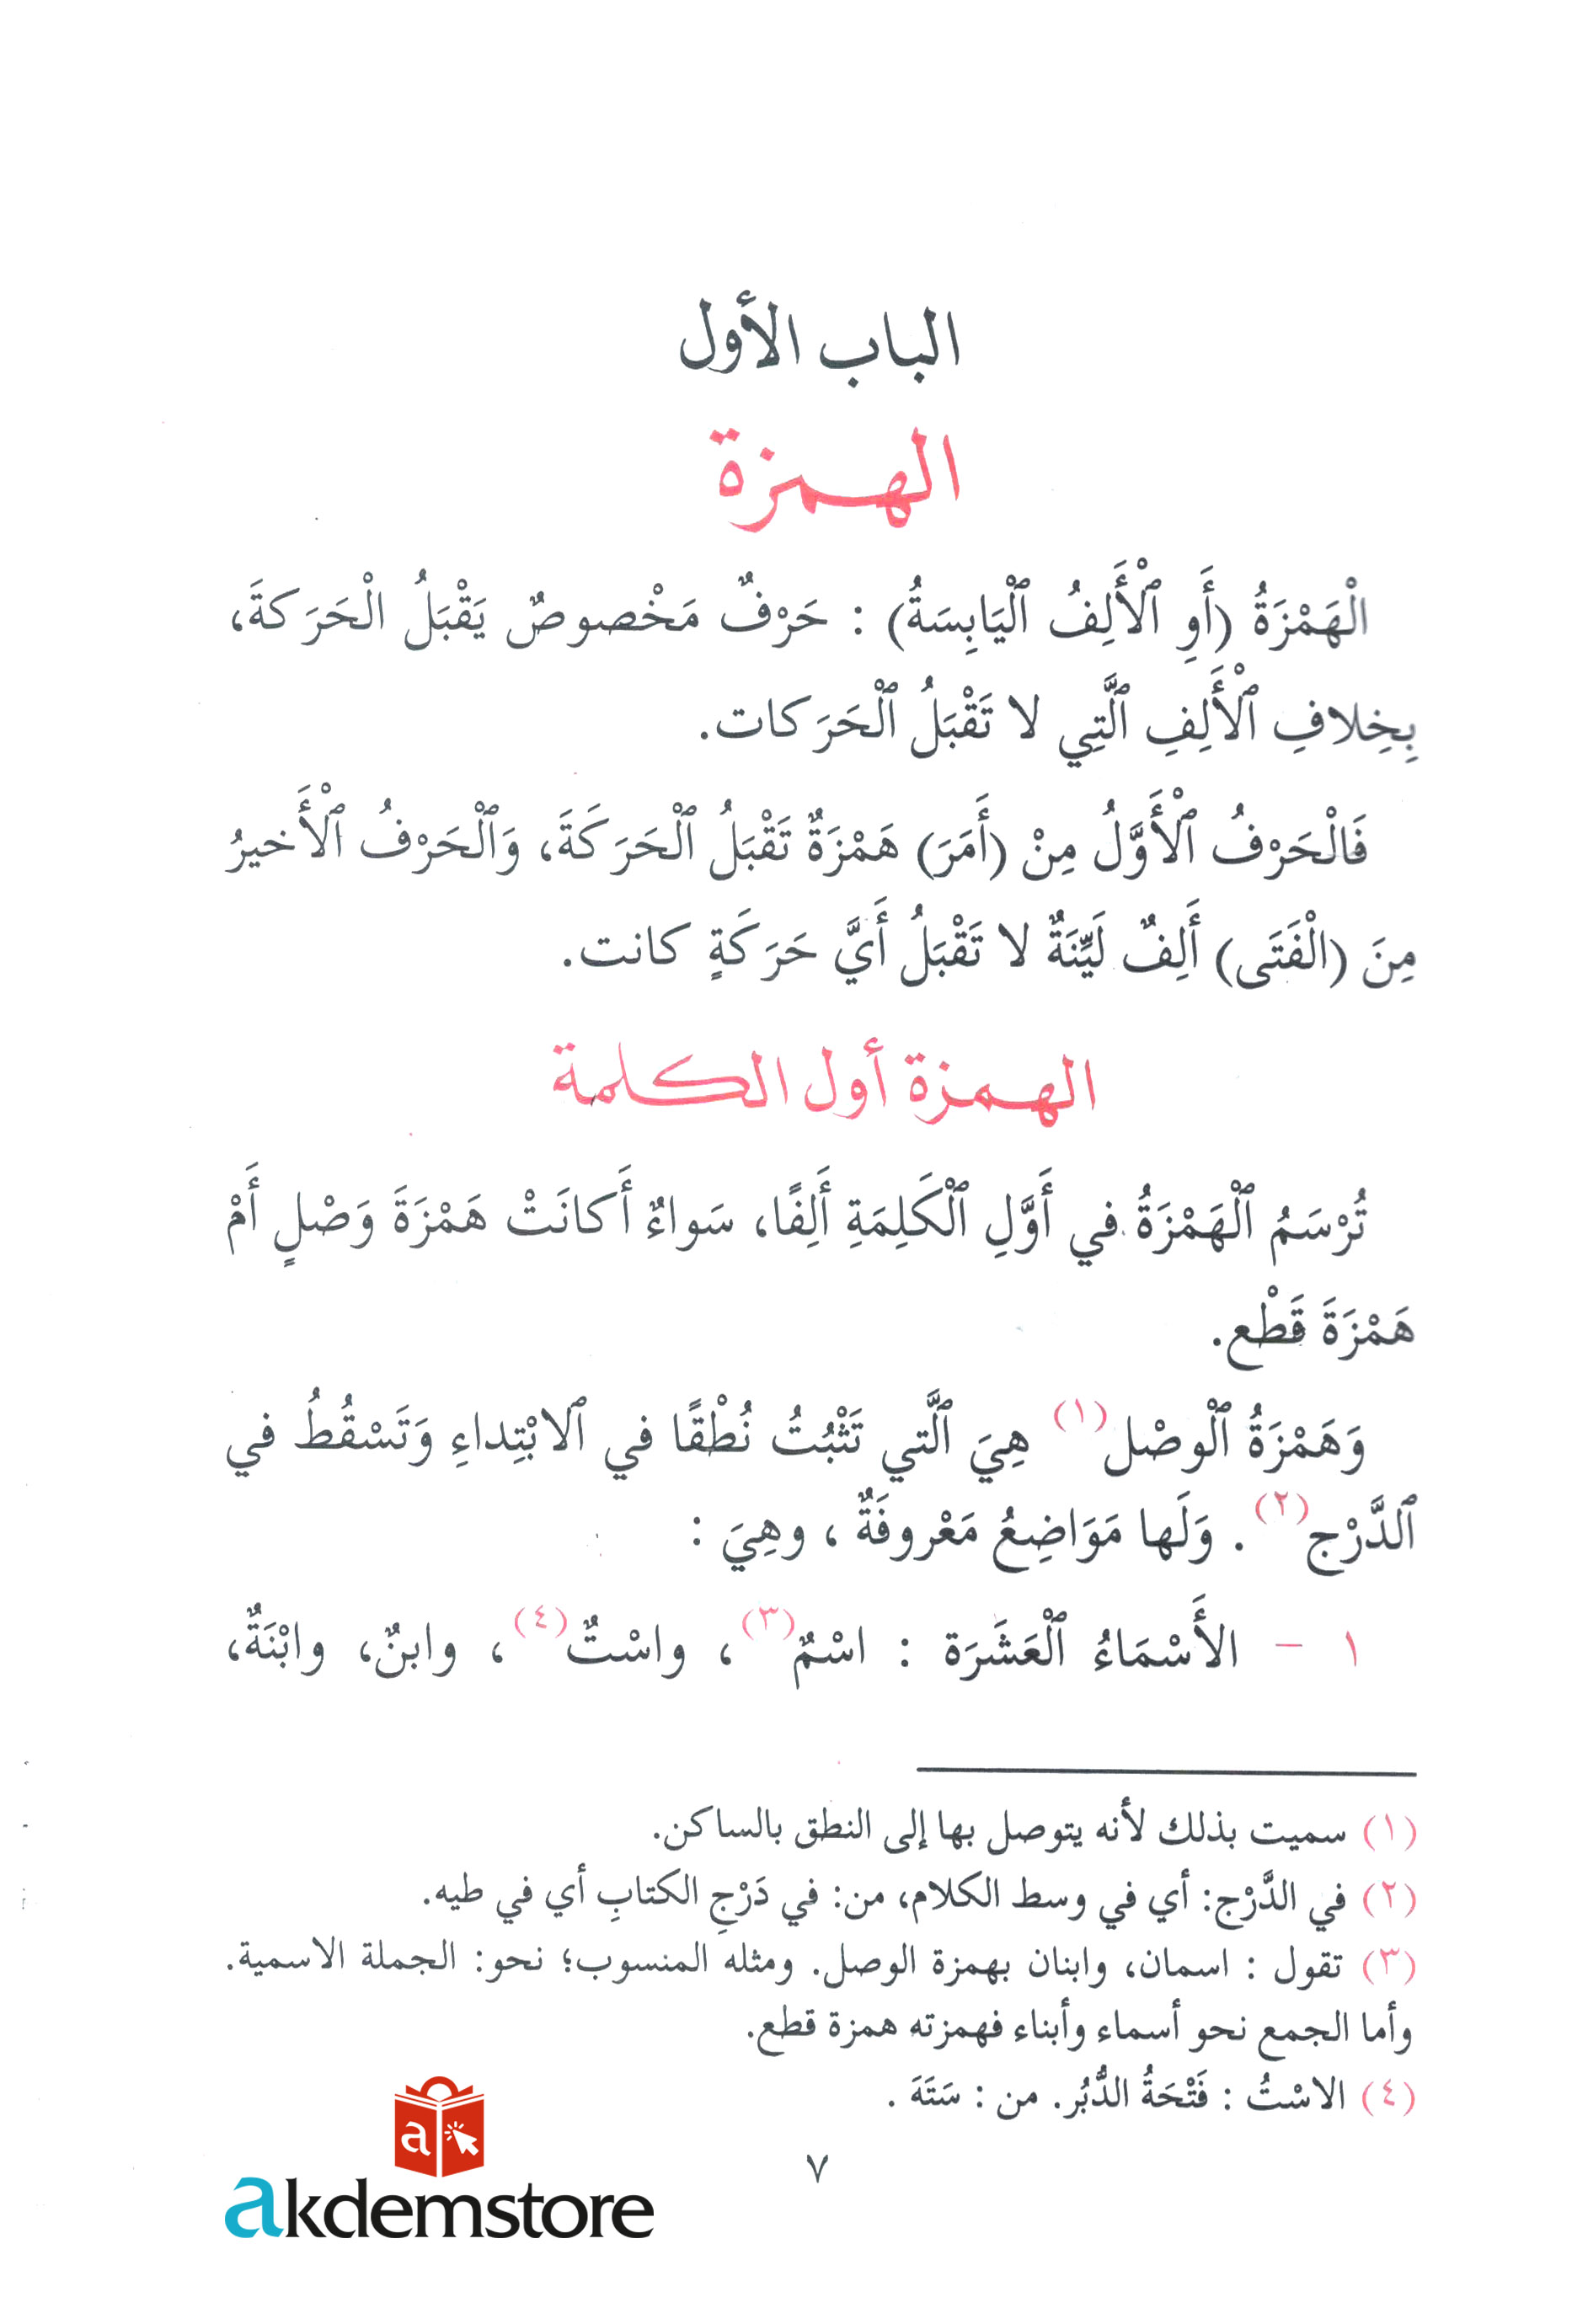 الباب الأول
الهمزة
الْهَمْزَةُ (أَوِ ٱلْأَلِفُ ٱلْيَابِسَةُ) : حَرْفٌ مَخْصوصٌ يَقْبَلُ الْحَرَكةَ،
بِخِلافِ ٱلْأَلِفِ ٱلَّتِي لا تَقْبَلُ ٱلْحَرَكات.
فَالْحَرْفُ ٱلْأَوَّلُ مِنْ (أَمَرَ) هَمْزَةٌ تَقْبَلُ ٱلْحَرَكَةَ، وَٱلْحَرْفُ ٱلْأَخيرُ
مِنَ (الْفَتَى) أَلِفٌ لَيِّنَةٌ لا تَقْبَلُ أَيَّ حَرَكَةٍ كانت.
الهمزة أول الكلمة
تُرْسَمُ ٱلْهَمْزَةُ في أَوَّلِ ٱلْكَلِمَةِ أَلِفًا، سَواءٌ أَكانَتْ هَمْزَةَ وَصْلٍ أَمْ
هَمْزَةَ قَطْع.
وَهَمْزَةُ ٱلْوصْل(١) هِيَ ٱلَّتي تَثْبُتُ نُطْقًا في ٱلابْتِداءِ وَتَسْقُطُ في
ٱلدَّرْج(٢). وَلَها مَوَاضِعُ مَعْروفَةٌ ، وهِيَ :
١ – الأَسْمَاءُ ٱلْعَشَرَة : اسْمٌ(٣)، واسْتٌ(٤)، وابنٌ، وابْنَةٌ،
(١) سميت بذلك لأنه يتوصل بها إلى النطق بالساكن.
(٢) في الدَّرْج: أي في وسط الكلام، من: في دَرْجِ الكتابِ أي في طيه.
(٣) تقول : اسمان، وابنان بهمزة الوصل. ومثله المنسوب؛ نحو: الجملة الاسمية.
وأما الجمع نحو أسماء وأبناء فهمزته همزة قطع.
(٤) الاسْتُ : فَتْحَةُ الدُّبُر. من : سَتَهَ .
٧
a
akdemstore